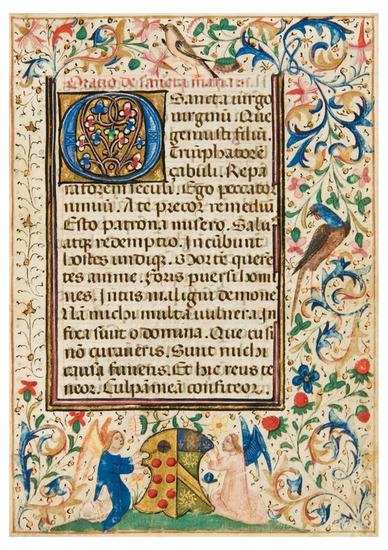 Oratio de sancta maria
O Sancta virgo
virginū. Que
genuisti filiū.
Triūphatorē
zabuli. Repa
ratorem seculi. Ego peccator
nimiū. A te precor remediū
Esto patrona misero. Salu
atq̃ redemptio. Incūbunt
hostes undiq̃. Morte quere
tes anime. Foris pul si ho
nes. Intus maligni demone
Nā michi multa vulnera. In
fixa sunt o domina. Que cu si
nō curaveris. Sunt michi
causa funeris. Et hic reus te
neor. Culpā meā confiteor.